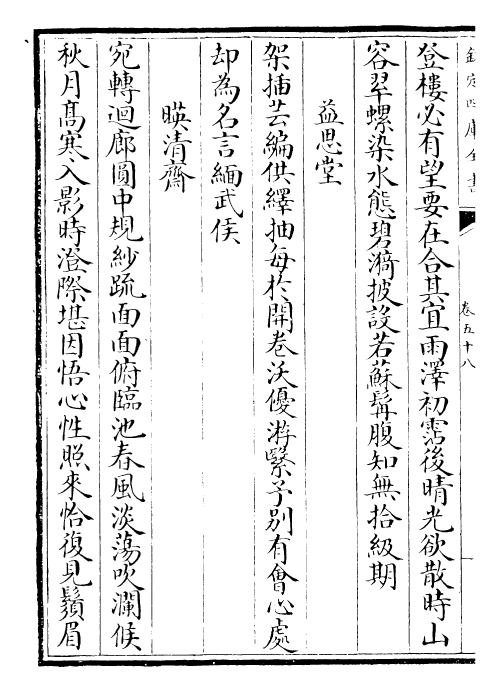 欽定四庫全書
卷五十八
登樓必有望要在合其宜雨澤初霑後晴光欲散時山
容翠螺染水態碧漪披設若蘇髯腹知無拾級期
益思堂
架插芸編供繹抽每於開卷沃優游繄予別有會心處
却為名言緬武侯
暎清齋
宛轉迴廊圓中規紗疏面面俯臨池春風淡蕩吹瀾候
秋月髙寒入影時澄際堪因悟心性照來恰復見鬚眉